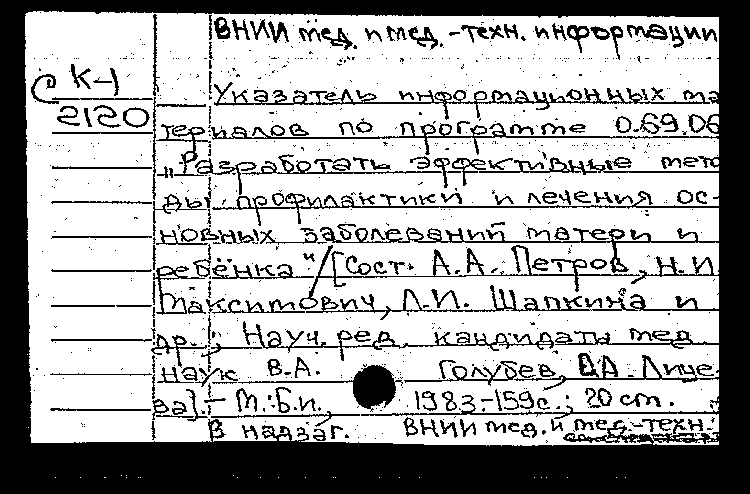 ВНИИ мед. и мед.-техн. информации
С К-1
2120
Указатель информационных ма
териалов по программе 0.69.06
„Разработать эффективные мето
ды профилактики и лечения ос-
новных заболеваний матери и
ребёнка"/[Сост. А.А. Петров, Н.И
Максимович, Л.И. Шапкина и
др.; Науч. ред. кандидаты мед.
наук В.А. Голубев, Лице
ва].- М.: Б.и., 1983.-159с.; 20 см.
В надзаг. ВНИИ мед. и мед.-техн.